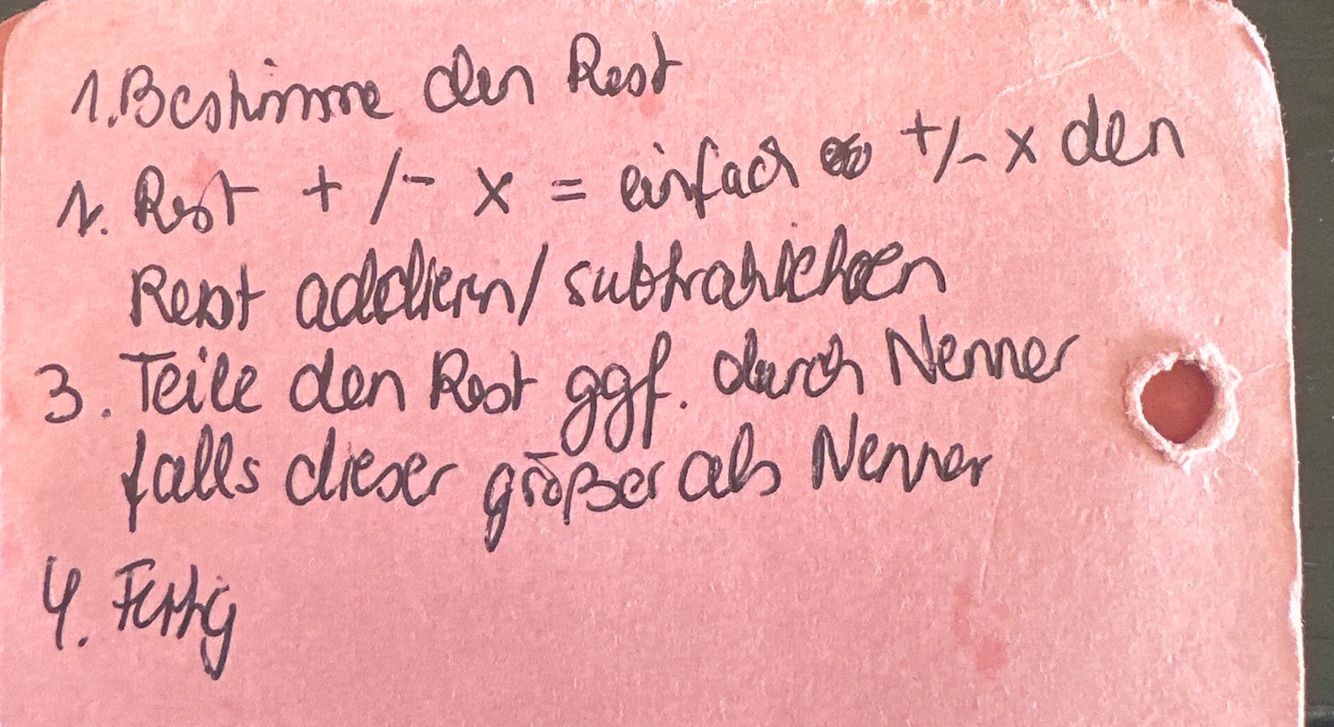 1. Bestimme den Rest
2. Rest + /- x = einfach +/- x den
Rest addieren/ subtrahieren
3. Teile den Rest ggf. durch Nenner
falls dieser größer als Nenner
4. Fertig